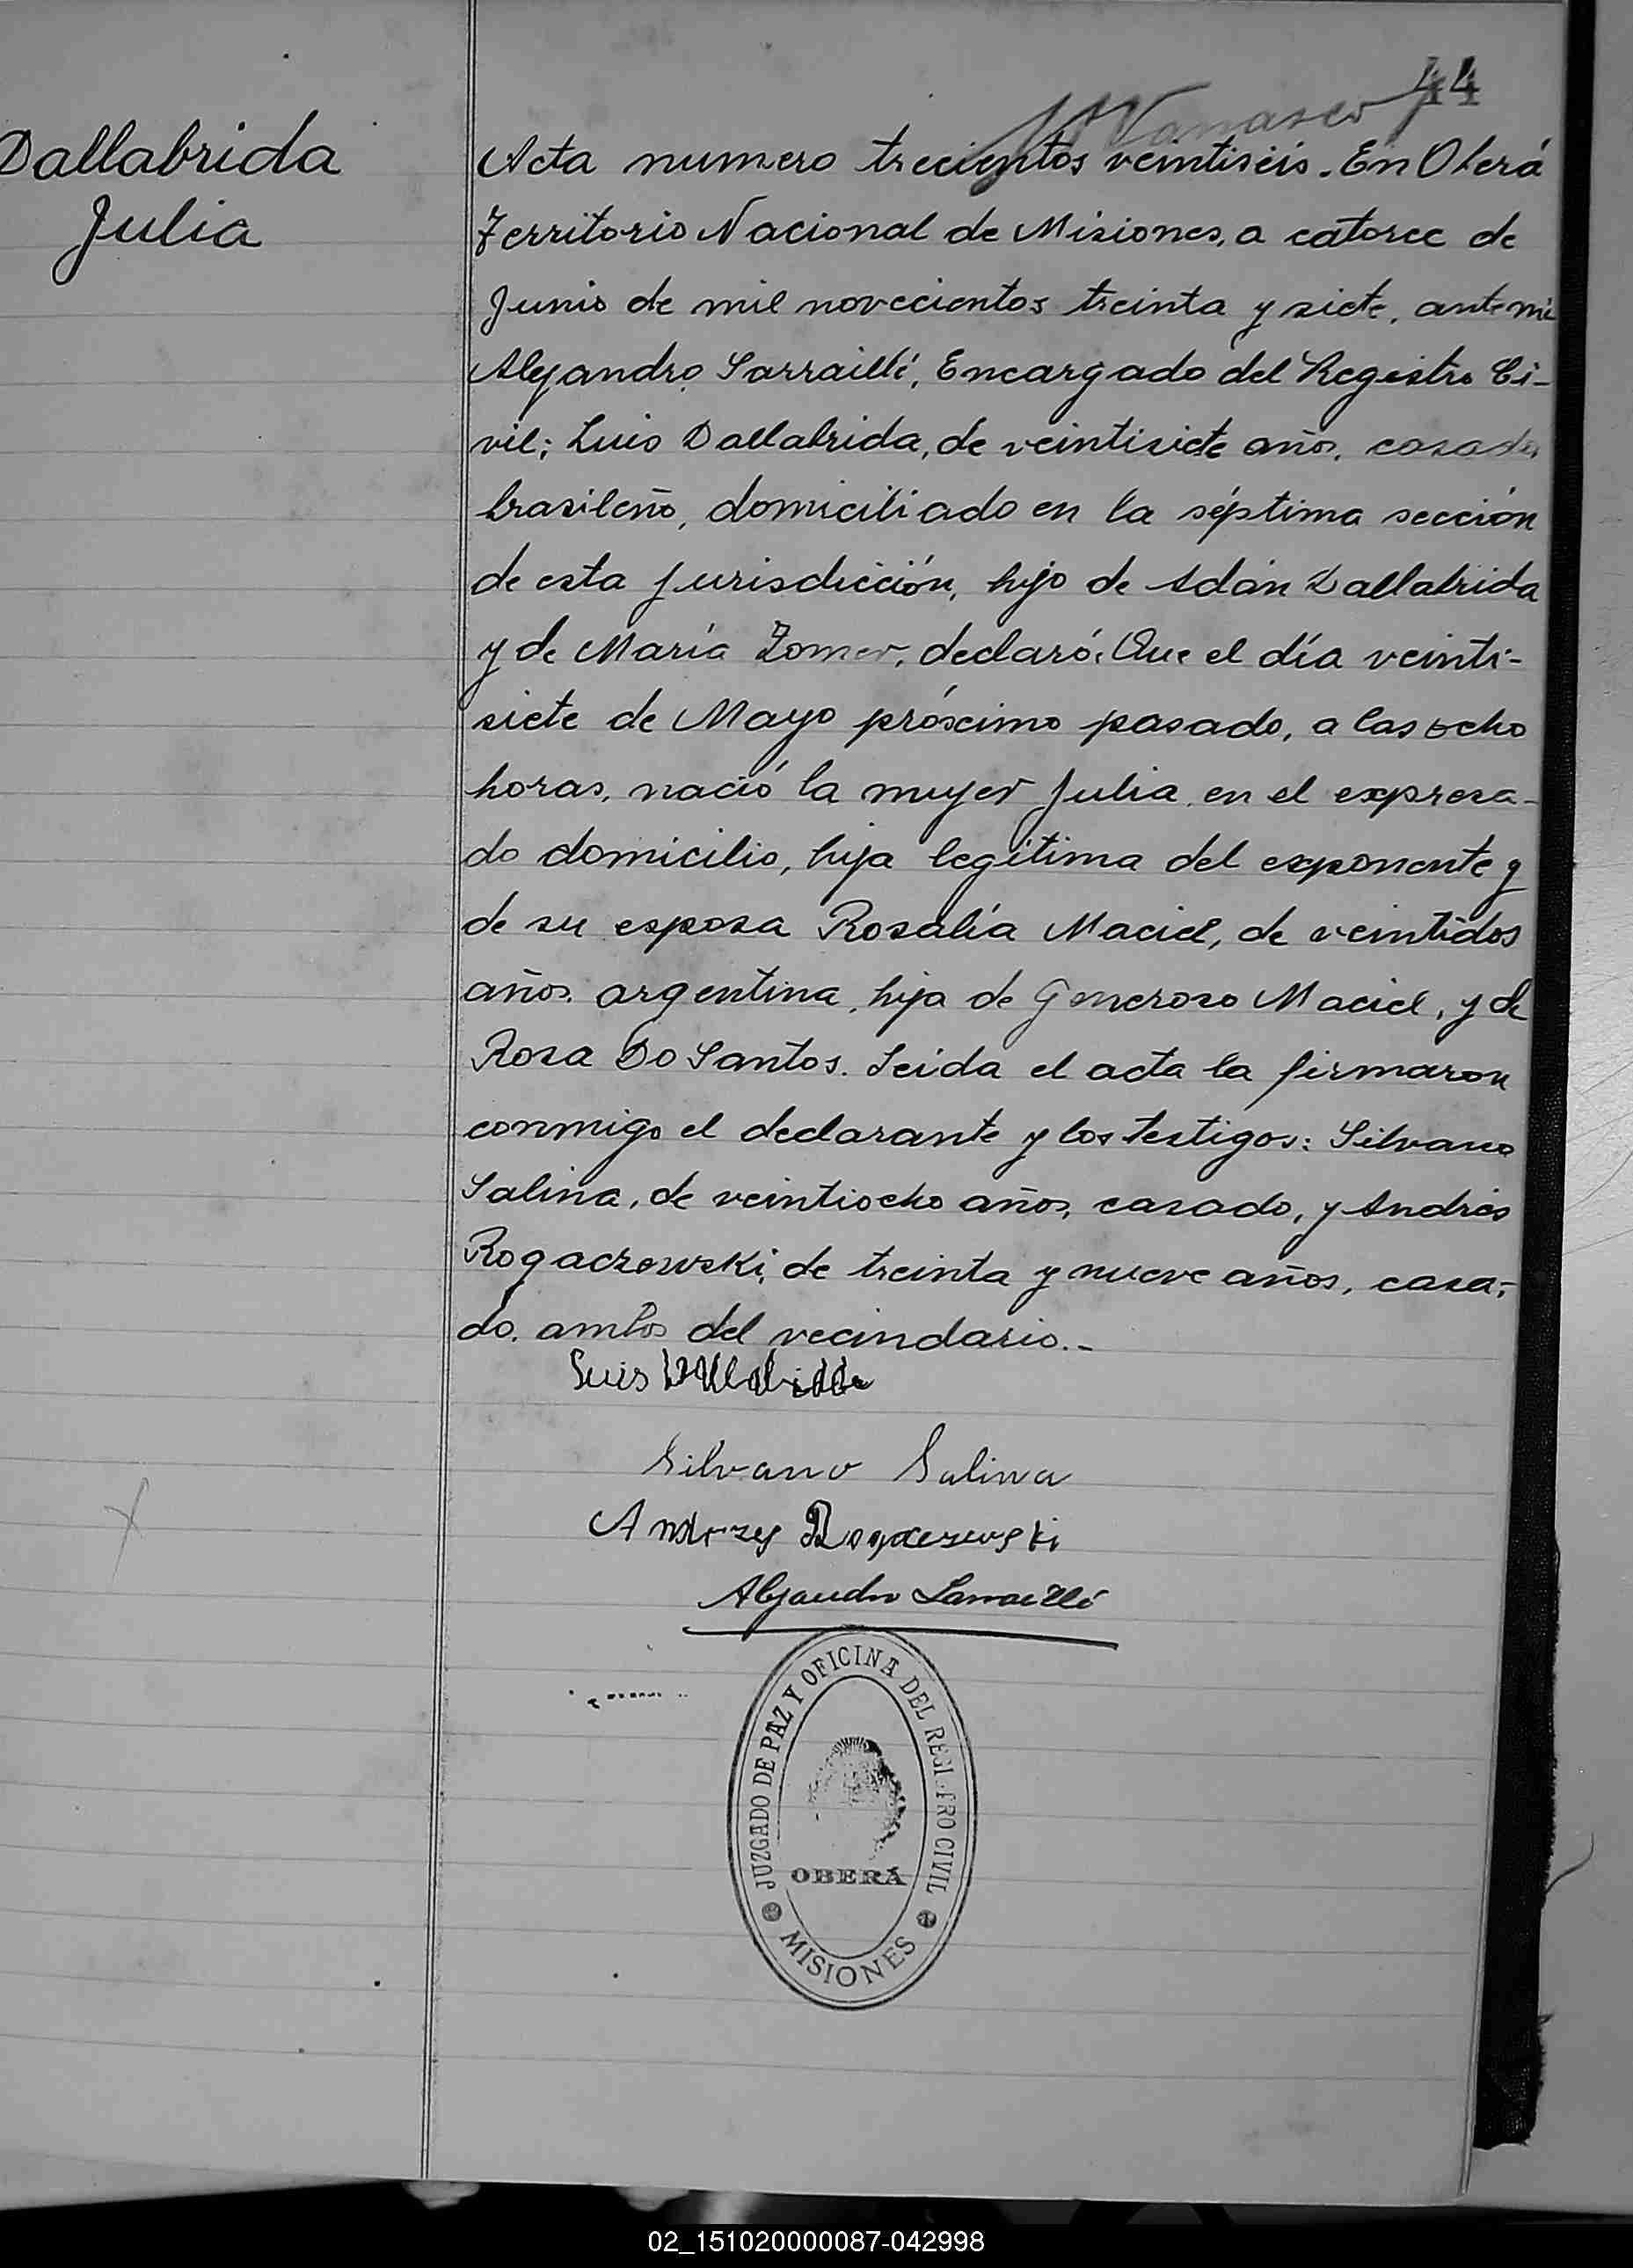 44
Dallabrida
Julia
Acta numero trecientos veintiseis. En Oberá
Territorio Nacional de Misiones, a catorce de
Junio de mil novecientos treinta y siete, ante mi
Alejandro Sarraillé, Encargado del Registro Ci-
vil; Luis Dallabrida, de veintisiete años, casado,
brasileño, domiciliado en la séptima sección
de esta jurisdicción, hijo de Adán Dallabrida
y de María Zomer, declaró: Que el día veinti-
siete de Mayo próximo pasado, a las ocho
horas, nació la mujer Julia, en el expresa-
do domicilio, hija legítima del exponente y
de su esposa Rosalía Maciel, de veintidos
años, argentina, hija de Generoso Maciel, y de
Rosa Do Santos. Leida el acta la firmaron
conmigo el declarante y los testigos: Silvano
Salina, de veintiocho años, casado, y Andrés
Rogaczewski, de treinta y nueve años, casa-
do, ambos del vecindario.-
Luis Dallabrida
Silvano Salina
Andrzej Rogaczewski
Alejandro Sarraillé
JUZGADO DE PAZ Y OFICINA DEL REGISTRO CIVIL
OBERÁ
MISIONES
02_151020000087-042998